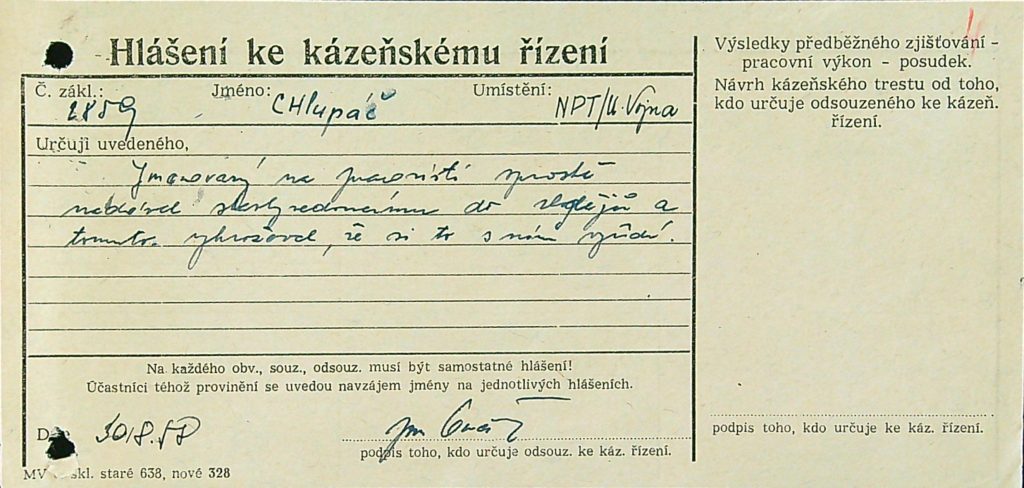 Hlášení ke kázeňskému řízení
Č. zákl.: Jméno: Umístění:
2859 CHlupáč NPT/U Vojna
Určuji uvedeného,
Jmenovaný na pracovišti sprostě
nadával do zlodějů a
tomuto vyhrožoval, že si to s ním vyřídí.
Na každého obv., souz., odsouz. musí být samostatné hlášení!
Účastníci téhož provinění se uvedou navzájem jmény na jednotlivých hlášeních.
30/8.58
podpis toho, kdo určuje odsouz. ke káz. řízení.
MV skl. staré 638, nové 328
Výsledky předběžného zjišťování -
pracovní výkon - posudek.
Návrh kázeňského trestu od toho,
kdo určuje odsouzeného ke kázeň.
řízení.
podpis toho, kdo určuje ke káz. řízení.